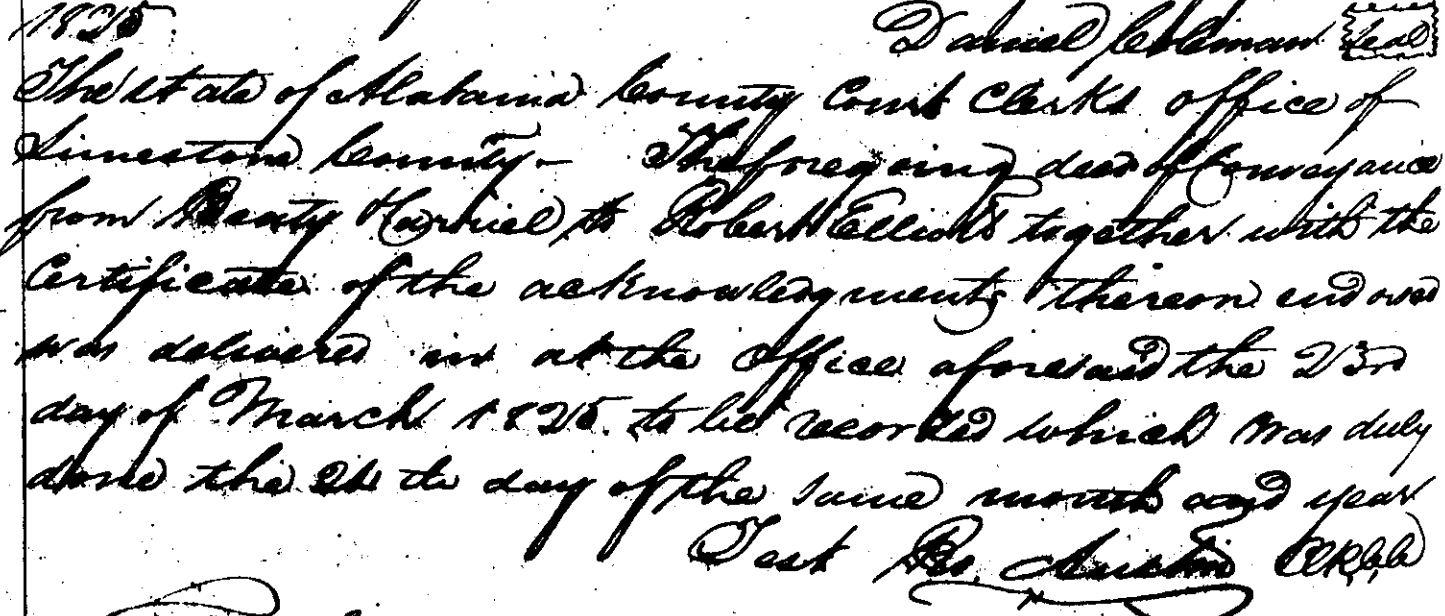 1825. Daniel Coleman Seal
The State of Alabama County Court Clerks office of
Limestone County - The foregoing deed of Conveyance
from to Robert Elliott together with the
Certificate of the acknowledgments thereon endorsed
was delivered in at the office aforesaid the 23rd
day of March 1825. to be recorded which was duly
done the th day of the same month and year
Test Ro. Austin Clk,